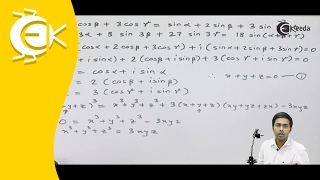 cosβ + 3cosγ = sinα + 2sinβ + 3sin
3α + 8 sin3β + 27 sin3γ = 18 sin(α+β+γ)
Ekeeda
cosα + 2cosβ + 3cosγ) + i(sinα + 2sinβ + 3sinγ) = 0
+ i sinα) + 2(cosβ + i sinβ) + 3(cosγ + i sinγ) = 0
= cosα + i sinα
∴ x+y+z=0 — ①
= 2(cosβ + i sinβ)
= 3(cosγ + i sinγ)
x³ + y³ + z³ + 3(x+y+z)(xy+yz+zx) - 3xyz
0 = x³ + y³ + z³ - 3xyz
x³ + y³ + z³ = 3xyz